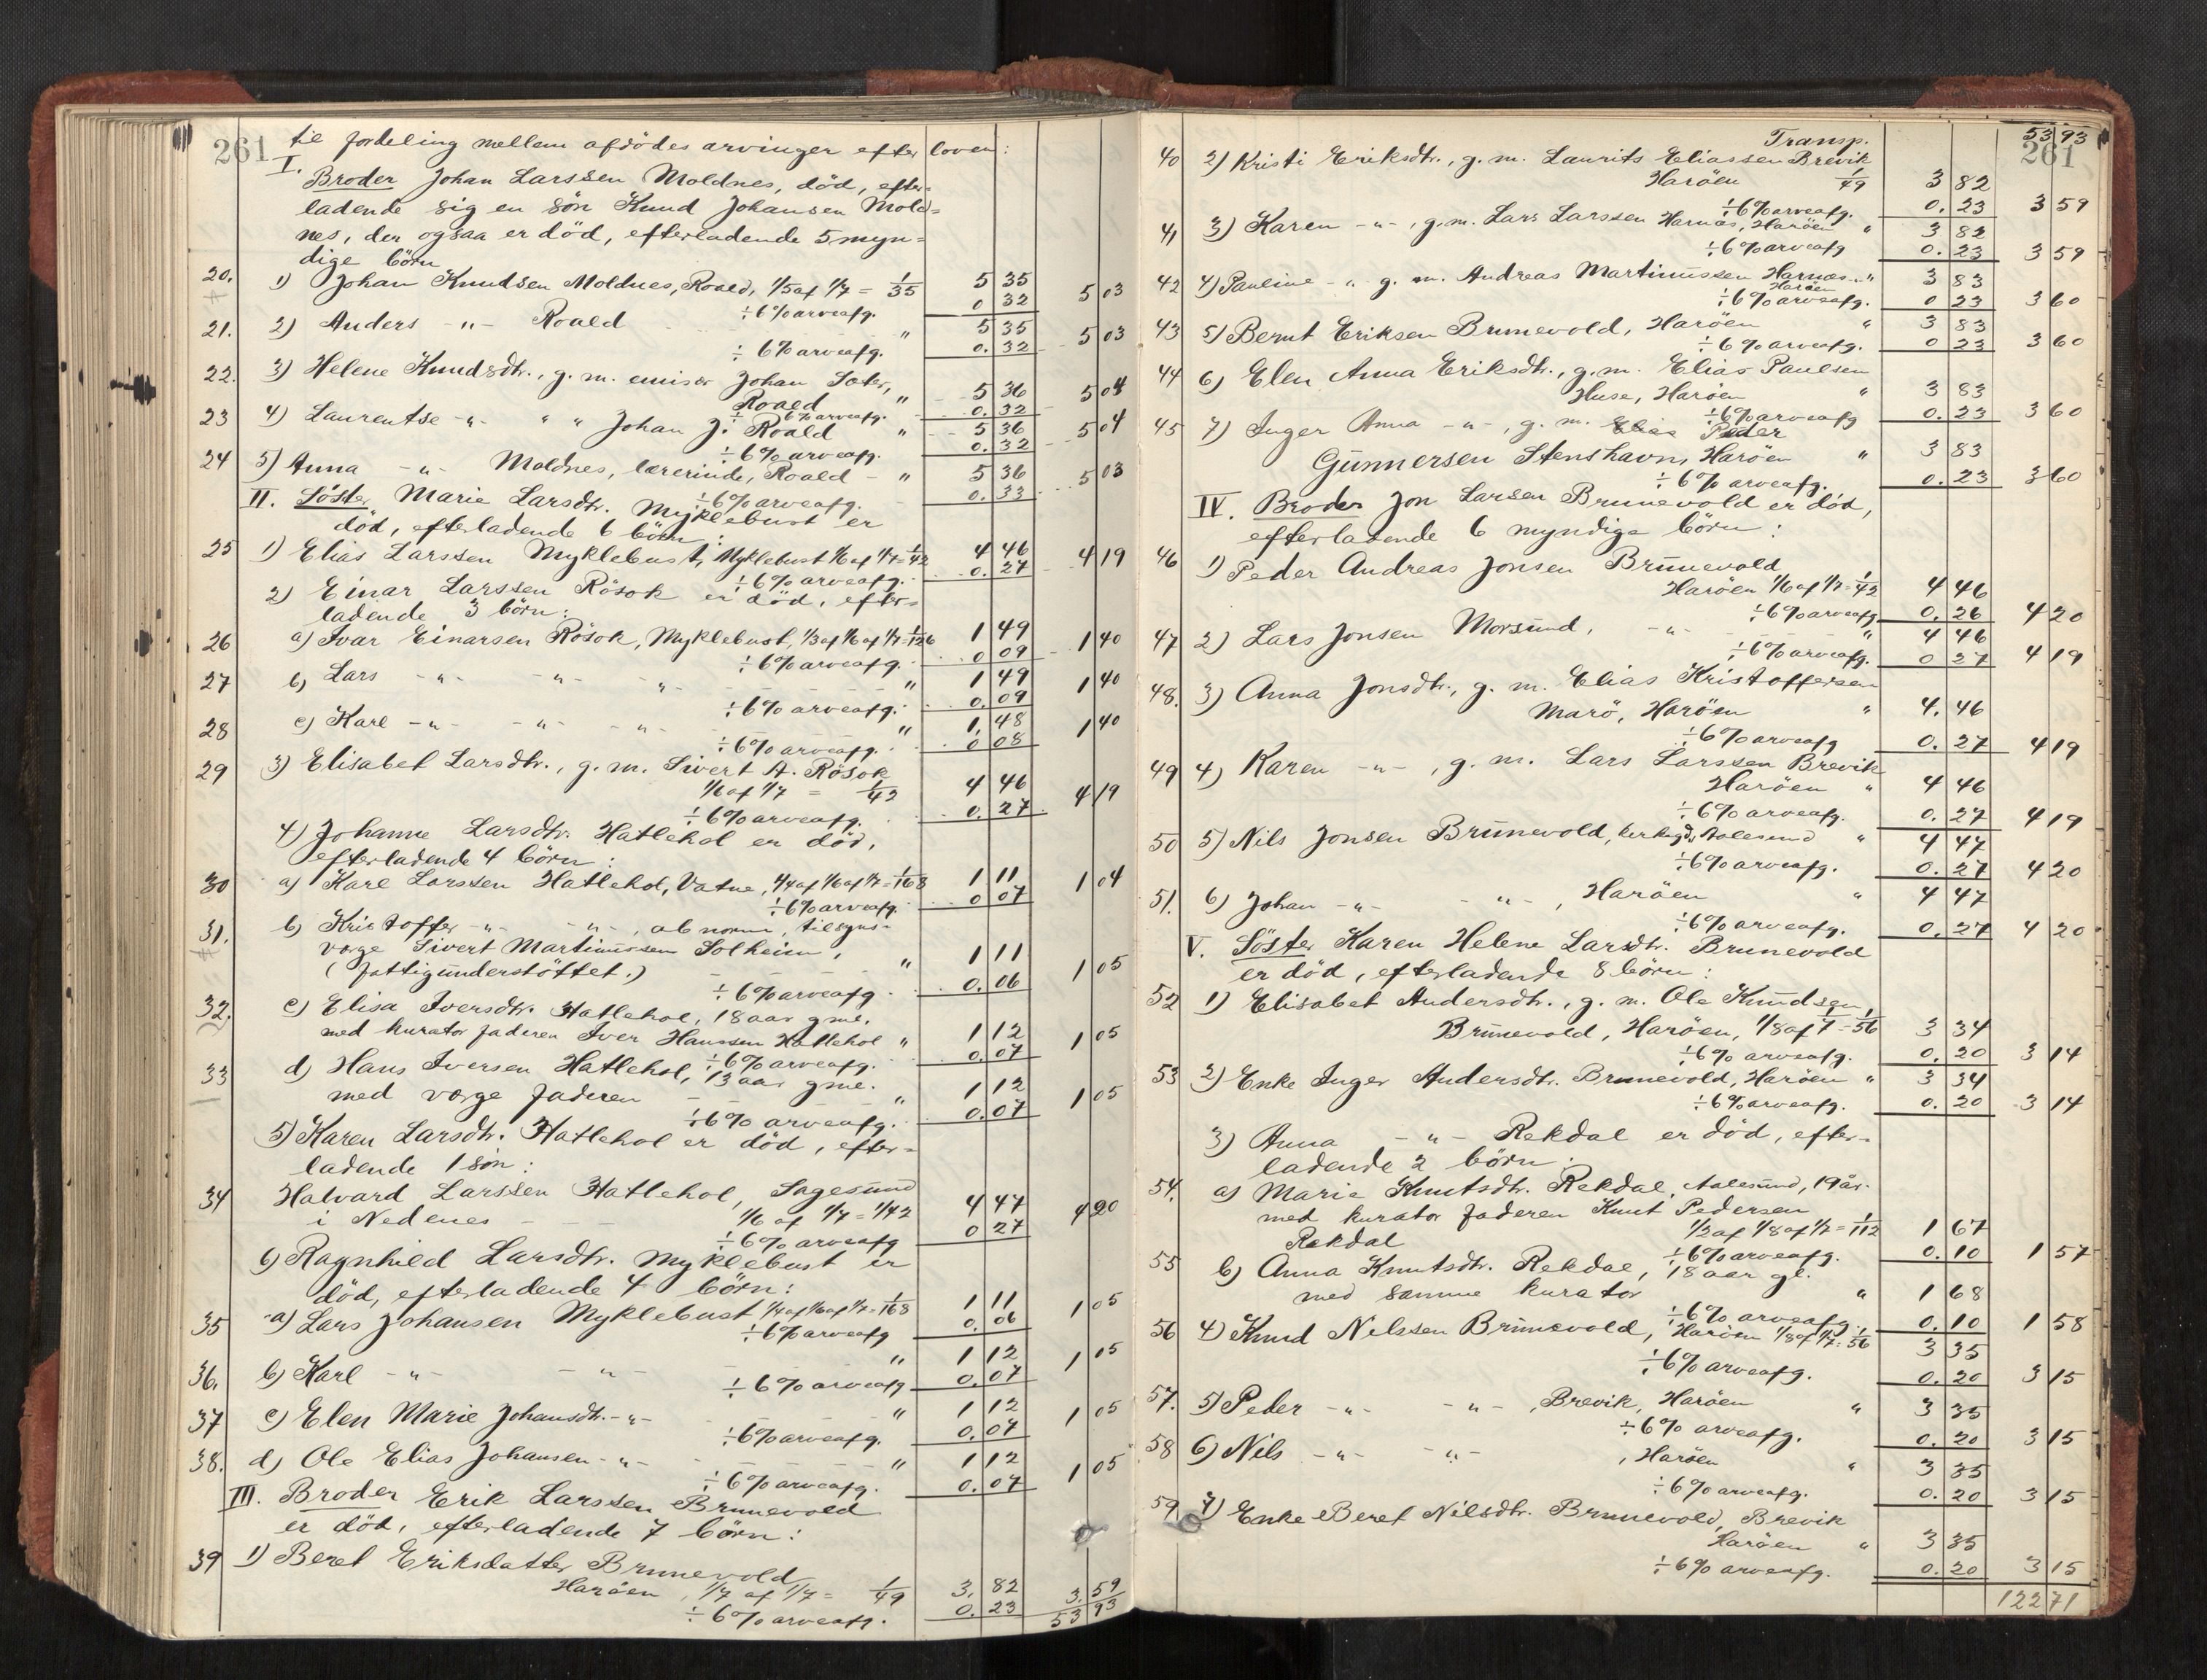 261
til fordeling mellem afdödes arvinger efter loven:
I.
Broder Johan Larssen Moldnes, död, efter=
ladende sig en sön Knud Johansen Mold=
nes, der ogsaa er död, efterladende 5 myn=
dige börn
20. 1) Johan Knudsen Moldnes, Roald, 1/5 af 1/7 = 1/35 5 35
÷ 6% arveafg. 0 32 5 03
21. 2) Anders -"- Roald " 5 35
÷ 6% arveafg. 0.32 5 03
22. 3) Helene Knudsdtr., g. m. emisær Johan Sæter,
Roald " 5 36
÷ 6% arveafg. 0.32 5 04
23 4) Laurentse -"- " " Johan J. Roald " 5 36
÷ 6% arveafg. 0.32 5 04
24 5) Anna -"- Moldnes, lærerinde, Roald - " 5 36
÷ 6% arveafg. 0.33 5 03
II. Söster Marie Larsdtr. Myklebust er
död, efterladende 6 börn:
25 1) Elias Larssen Myklebust, Myklebust 1/6 af 1/7 = 1/42 4 46
÷ 6% arveafg. 0.27 4 19
2) Einar Larssen Rösok er död, efter-
ladende 3 börn:
26 a) Ivar Einarsen Rösok, Myklebust, 1/3 af 1/6 af 1/7 = 1/126 1 49
÷ 6% arveafg. 0 09 1 40
27 b) Lars -"- -"- -"- " 1 49
÷ 6% arveafg. 0.09 1 40
28 c) Karl -"- -"- -"- " 1.48
÷ 6% arveafg. 0 08 1 40
29 3) Elisabet Larsdtr., g. m. Sivert A. Rösok
1/6 af 1/7 = 1/42 4 46
÷ 6% arveafg. 0.27 4 19
4) Johanne Larsdtr. Hatlehol er död,
efterladende 4 börn:
30 a) Karl Larssen Hatlehol, Vatne, 1/4 af 1/6 af 1/7 = 1/168 1 11
÷ 6% arveafg. 0 07 1 04
31. b) Kristoffer -"- -"-, abnorm, tilsyns-
værge Sivert Martinussen Solheim,
(fattigunderstöttet.) " 1 11
÷ 6% arveafg 0.06 1 05
32. c) Elisa Iversdtr. Hatlehol, 18 aar gml.
med kurator faderen Iver Hanssen Hatlehol " 1 12
÷ 6% arveafg. 0.07 1 05
33 d) Hans Iversen Hatlehol, 13 aar gml.
med værge faderen " 1 12
÷ 6% arveafg. 0.07 1 05
5) Karen Larsdtr. Hatlehol er död, efter-
ladende 1 sön:
34 Halvard Larssen Hatlehol, Sagesund
i Nedenes 1/6 af 1/7 = 1/42 4 47
÷ 6% arveafg 0 27 4 20
6) Ragnhild Larsdtr. Myklebust er
död, efterladende 4 börn:
35 a) Lars Johansen Myklebust 1/4 af 1/6 af 1/7 = 1/168 1 11
÷ 6% arveafg 0.06 1 05
36. b) Karl -"- -"- " 1 12
÷ 6% arveafg 0.07 1 05
37 c) Elen Marie Johansdtr. -"- " 1 12
÷ 6% arveafg. 0.07 1 05
38. d) Ole Elias Johansen -"- " 1 12
÷ 6% arveafg. 0.07 1 05
III. Broder Erik Larssen Brunevold
er död, efterladende 7 börn:
39 1) Beret Eriksdatter Brunevold
Haröen, 1/7 af 1/7 = 1/49 3.82
÷ 6% arveafg. 0.23 3.59
53 93
Transp. 53 93
261
40 2) Kristi Eriksdtr., g. m. Laurits Eliassen Brevik
Haröen 1/49 3 82
÷ 6% arveafg. 0.23 3 59
41 3) Karen -"-, g. m. Lars Larssen Harnæs, Haröen " 3 82
÷ 6% arveafg 0.23 3 59
42 4) Pauline -"- g. m. Andreas Martinussen Harnæs
Haröen " 3 83
÷ 6% arveafg. 0 23 3 60
43 5) Bernt Eriksen Brunevold, Haröen " 3 83
÷ 6% arveafg. 0 23 3 60
44 6) Elen Anna Eriksdtr., g. m. Elias Paulsen
Huse, Haröen " 3 83
÷ 6% arveafg 0.23 3 60
45 7) Inger Anna -"-, g. m. Elias Peder
Gunnersen Stenshavn, Haröen " 3 83
÷ 6% arveafg. 0.23 3 60
IV. Broder Jon Larsen Brunevold er död,
efterladende 6 myndige börn:
46 1) Peder Andreas Jonsen Brunevold
Haröen 1/6 af 1/7 = 1/42 4 46
÷ 6% arveafg 0.26 4 20
47 2) Lars Jonsen Morsund, -"- " 4 46
÷ 6% arveafg. 0 27 4 19
48. 3) Anna Jonsdtr., g. m. Elias Kristoffersen
Marö, Haröen " 4.46
÷ 6% arveafg 0.27 4 19
49 4) Karen -"-, g. m. Lars Larssen Brevik
Haröen " 4 46
÷ 6% arveafg. 0.27 4 19
50 5) Nils Jonsen Brunevold, Aalesund " 4 47
÷ 6% arveafg. 0.27 4 20
51. 6) Johan -"- -"-, Haröen " 4 47
÷ 6% arveafg. 0.27 4 20
V. Söster Karen Helene Larsdtr. Brunevold
er död, efterladende 8 börn:
52 1) Elisabet Andersdtr., g. m. Ole Knudsen
Brunevold, Haröen, 1/8 af 1/7 = 1/56 3 34
÷ 6% arveafg. 0.20 3 14
53 2) Enke Inger Andersdtr. Brunevold, Haröen " 3 34
÷ 6% arveafg. 0.20 3 14
3) Anna -"- Rekdal er död, efter-
ladende 2 börn:
54. a) Marie Knutsdtr. Rekdal, Aalesund, 19 år.
med kurator faderen Knut Pedersen
Rekdal 1/2 af 1/8 af 1/7 = 1/112 1 67
÷ 6% arveafg. 0.10 1 57
55 b) Anna Knutsdtr. Rekdal, 18 aar gl.
med samme kurator " 1 68
÷ 6% arveafg. 0.10 1 58
56 4) Knud Nilssen Brunevold, Haröen 1/8 af 1/7 = 1/56 3 35
÷ 6% arveafg. 0.20 3 15
57. 5) Peder -"- -"-, Brevik, Haröen " 3 35
÷ 6% arveafg. 0.20 3 15
58 6) Nils -"- -"-, Haröen " 3 35
÷ 6% arveafg. 0.20 3 15
59. 7) Enke Beret Nilsdtr. Brunevold, Brevik
Haröen " 3 35
÷ 6% arveafg. 0.20 3 15
122 71